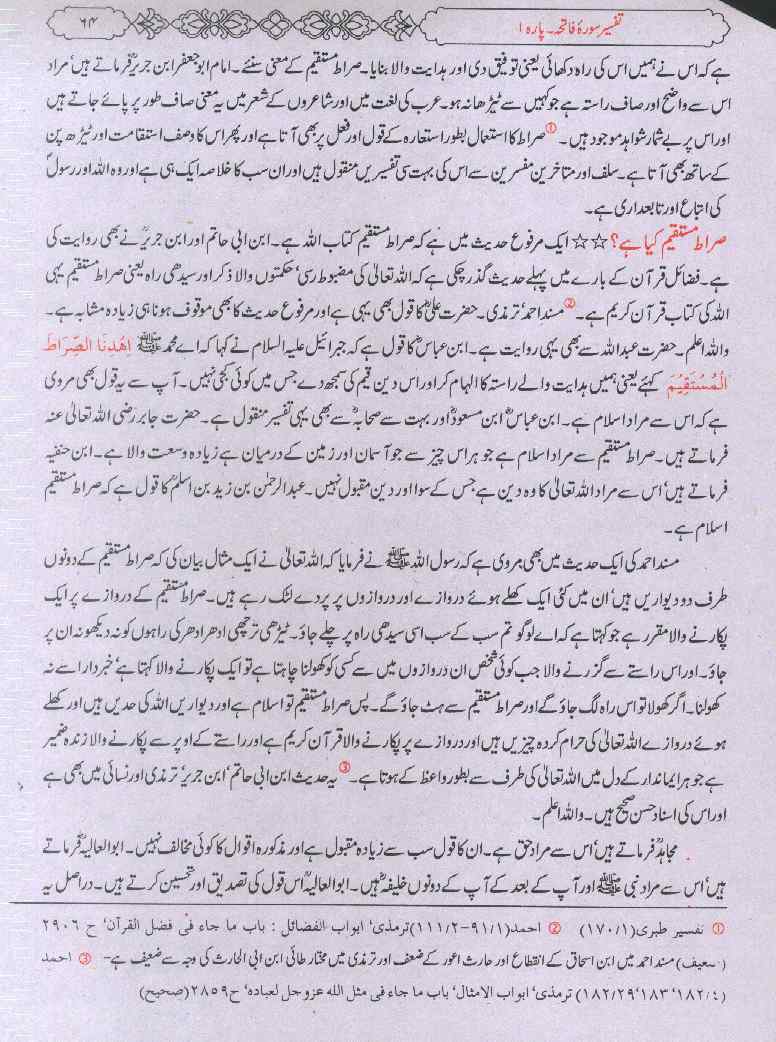 تفسیر سورۂ فاتحہ۔ پارہ ۱
۶۴
ہے کہ اس نے ہمیں اس کی راہ دکھائی یعنی توفیق دی اور ہدایت والا بنایا۔ صراط مستقیم کے معنی سنئے۔ امام ابو جعفر ابن جریرؒ فرماتے ہیں' مراد
اس سے واضح اور صاف راستہ ہے جو کہیں سے ٹیڑھا نہ ہو۔ عرب کی لغت میں اور شاعروں کے شعر میں یہ معنی صاف طور پر پائے جاتے ہیں
اور اس پر بے شمار شواہد موجود ہیں۔ ① صراط کا استعمال بطور استعارہ کے قول اور فعل پر بھی آتا ہے اور پھر اس کا وصف استقامت اور ٹیڑھ پن
کے ساتھ بھی آتا ہے۔ سلف اور متاخرین مفسرین سے اس کی بہت سی تفسیریں منقول ہیں اور ان سب کا خلاصہ ایک ہی ہے اور وہ اللہ اور رسولؐ
کی اتباع اور تابعداری ہے۔
صراط مستقیم کیا ہے؟ ☆☆ ایک مرفوع حدیث میں ہے کہ صراط مستقیم کتاب اللہ ہے۔ ابن ابی حاتم اور ابن جریرؒ نے بھی روایت کی
ہے۔ فضائل قرآن کے بارے میں پہلے حدیث گذر چکی ہے کہ اللہ تعالیٰ کی مضبوط رسی' حکمتوں والا ذکر اور سیدھی راہ یعنی صراط مستقیم یہی
اللہ کی کتاب قرآن کریم ہے۔ ② مسند احمد' ترمذی۔ حضرت علیؓ کا قول بھی یہی ہے اور مرفوع حدیث کا بھی موقوف ہونا ہی زیادہ مشابہ ہے۔
واللہ اعلم۔ حضرت عبداللہ سے بھی یہی روایت ہے۔ ابن عباسؓ کا قول ہے کہ جبرائیل علیہ السلام نے کہا کہ اے محمد ﷺ اِهْدِنَا الصِّرَاطَ
الْمُسْتَقِيْمَ کہئے یعنی ہمیں ہدایت والے راستہ کا الہام کر اور اس دین قیم کی سمجھ دے جس میں کوئی کجی نہیں۔ آپ سے یہ قول بھی مروی
ہے کہ اس سے مراد اسلام ہے۔ ابن عباسؓ ابن مسعودؓ اور بہت سے صحابہؓ سے بھی یہی تفسیر منقول ہے۔ حضرت جابر رضی اللہ تعالیٰ عنہ
فرماتے ہیں۔ صراط مستقیم سے مراد اسلام ہے جو ہر اس چیز سے جو آسمان اور زمین کے درمیان ہے زیادہ وسعت والا ہے۔ ابن حنفیہ
فرماتے ہیں' اس سے مراد اللہ تعالیٰ کا وہ دین ہے جس کے سوا اور دین مقبول نہیں۔ عبدالرحمٰن بن زید بن اسلمؒ کا قول ہے کہ صراط مستقیم
اسلام ہے۔
مسند احمد کی ایک حدیث میں بھی مروی ہے کہ رسول اللہ ﷺ نے فرمایا کہ اللہ تعالیٰ نے ایک مثال بیان کی کہ صراط مستقیم کے دونوں
طرف دو دیواریں ہیں' ان میں کئی ایک کھلے ہوئے دروازے اور دروازوں پر پردے لٹک رہے ہیں۔ صراط مستقیم کے دروازے پر ایک
پکارنے والا مقرر ہے جو کہتا ہے کہ اے لوگو تم سب کے سب اسی سیدھی راہ پر چلے جاؤ۔ ٹیڑھی ترچھی ادھر ادھر کی راہوں کو نہ دیکھو نہ ان پر
جاؤ۔ اور اس راستے سے گزرنے والا جب کوئی شخص ان دروازوں میں سے کسی کو کھولنا چاہتا ہے تو ایک پکارنے والا کہتا ہے' خبردار اسے نہ
کھولنا۔ اگر کھولا تو اس راہ لگ جاؤ گے اور صراط مستقیم سے ہٹ جاؤ گے۔ پس صراط مستقیم تو اسلام ہے اور دیواریں اللہ کی حدیں ہیں اور کھلے
ہوئے دروازے اللہ تعالیٰ کی حرام کردہ چیزیں ہیں اور دروازے پر پکارنے والا قرآن کریم ہے اور راستے کے اوپر سے پکارنے والا زندہ ضمیر
ہے جو ہر ایماندار کے دل میں اللہ تعالیٰ کی طرف سے بطور واعظ کے ہوتا ہے۔ ③ یہ حدیث ابن ابی حاتم' ابن جریر' ترمذی اور نسائی میں بھی ہے
اور اس کی اسناد حسن صحیح ہیں۔ واللہ اعلم۔
مجاہدؒ فرماتے ہیں' اس سے مراد حق ہے۔ ان کا قول سب سے زیادہ مقبول ہے اور مذکورہ اقوال کا کوئی مخالف نہیں۔ ابوالعالیہؒ فرماتے
ہیں' اس سے مراد نبی ﷺ اور آپ کے بعد کے آپ کے دونوں خلیفہؓ ہیں۔ ابوالعالیہؒ اس قول کی تصدیق اور تحسین کرتے ہیں۔ دراصل یہ
① تفسیر طبری(۱/۱۷۰) ② احمد(۱/۹۱-۲/۱۱۱)ترمذی' ابواب الفضائل : باب ما جاء فی فضل القرآن' ح ۲۹۰۶
(ضعیف) مسند احمد میں ابن اسحاق کے انقطاع اور حارث اعور کے ضعف اور ترمذی میں مختار طائی ابن ابی الحارث کی وجہ سے ضعیف ہے۔ ③ احمد
(۴/۱۸۲' ۱۸۳' ۲۹/۱۸۲) ترمذی' ابواب الامثال' باب ما جاء فی مثل الله عزوجل لعباده' ح۲۸۵۹(صحیح)